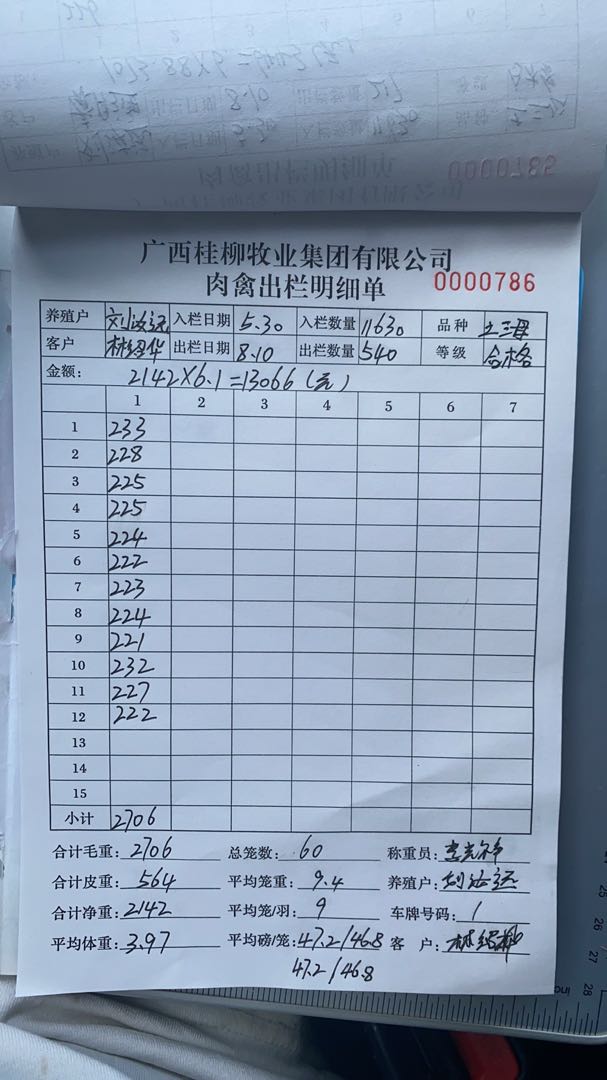 广西桂柳牧业集团有限公司
肉禽出栏明细单 0000786
养殖户 刘汝远 入栏日期 5.30 入栏数量 11630 品种 土三母
客户 林绍华 出栏日期 8.10 出栏数量 540 等级 合格
金额: 2142×6.1=13066(元)
1 2 3 4 5 6 7
1 233
2 228
3 225
4 225
5 224
6 222
7 223
8 224
9 221
10 232
11 227
12 222
13
14
15
小计 2706
合计毛重: 2706 总笼数: 60 称重员:
合计皮重: 564 平均笼重: 9.4 养殖户: 刘汝远
合计净重: 2142 平均笼/羽: 9 车牌号码: /
平均体重: 3.97 平均磅/笼: 47.2/46.8 客 户:
47.2/46.8
25
26
27
28